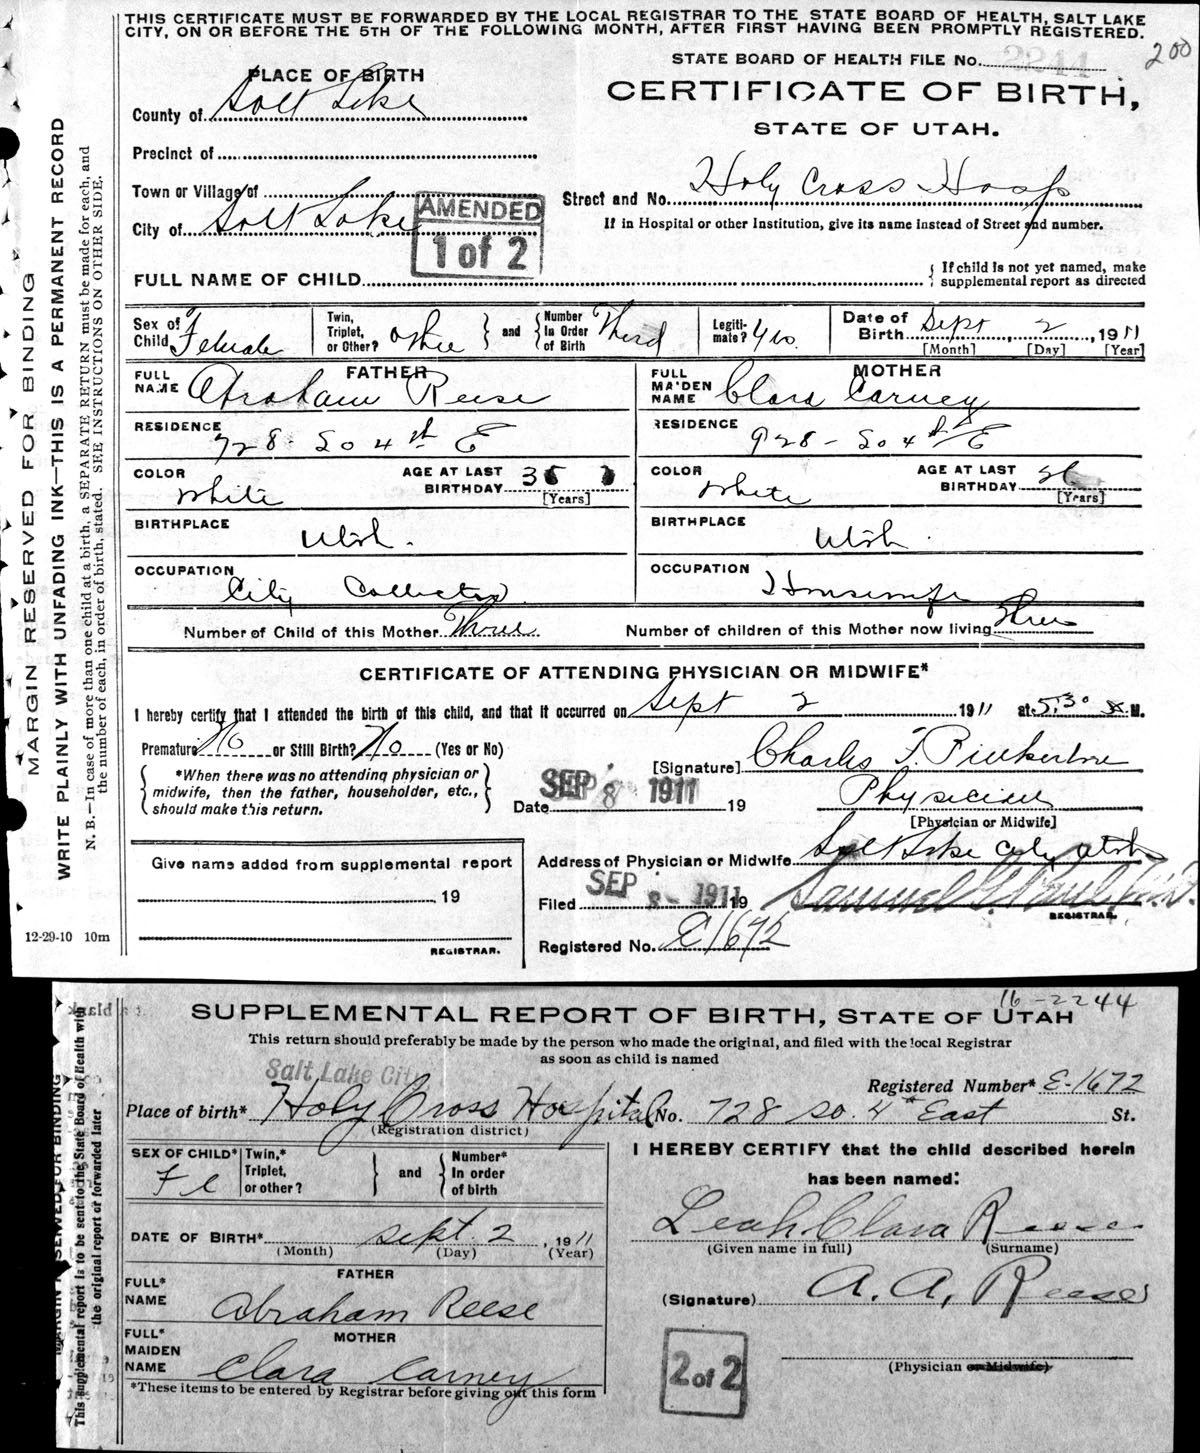 THIS CERTIFICATE MUST BE FORWARDED BY THE LOCAL REGISTRAR TO THE STATE BOARD OF HEALTH, SALT LAKE
CITY, ON OR BEFORE THE 5TH OF THE FOLLOWING MONTH, AFTER FIRST HAVING BEEN PROMPTLY REGISTERED.
200
STATE BOARD OF HEALTH FILE No. 2244
PLACE OF BIRTH
CERTIFICATE OF BIRTH,
STATE OF UTAH.
County of Salt Lake
Precinct of
Town or Village of
Street and No. Holy Cross Hosp
City of Salt Lake
If in Hospital or other Institution, give its name instead of Street and number.
AMENDED
1 of 2
FULL NAME OF CHILD
{ If child is not yet named, make
supplemental report as directed
Sex of Child Female
Twin, Triplet, or Other?
} and { Number In Order of Birth Third
Legiti- mate? Yes.
Date of Birth Sept 2, 1911
[Month] [Day] [Year]
FATHER
FULL NAME Abraham Reese
RESIDENCE 728 - So 4th E
COLOR White
AGE AT LAST BIRTHDAY 35
[Years]
BIRTHPLACE Utah.
OCCUPATION City Collector
MOTHER
FULL MAIDEN NAME Clara Carney
RESIDENCE 928 - So 4th E
COLOR White
AGE AT LAST BIRTHDAY
[Years]
BIRTHPLACE Utah.
OCCUPATION Housewife
Number of Child of this Mother Three
Number of children of this Mother now living Three
CERTIFICATE OF ATTENDING PHYSICIAN OR MIDWIFE*
I hereby certify that I attended the birth of this child, and that it occurred on Sept 2 1911 at 5:30 M.
Premature No or Still Birth? No (Yes or No)
{ *When there was no attending physician or
midwife, then the father, householder, etc.,
should make this return. }
[Signature] Charles F. Pinkerton
Date SEP 8 1911 19
Physician
[Physician or Midwife]
Give name added from supplemental report
19
REGISTRAR.
Address of Physician or Midwife Salt Lake City Utah
Filed SEP 8 - 1911 19
Samuel G. Paul M.D.
REGISTRAR.
Registered No. E1672
12-29-10 10m
MARGIN RESERVED FOR BINDING
WRITE PLAINLY WITH UNFADING INK—THIS IS A PERMANENT RECORD
N. B.—In case of more than one child at a birth, a SEPARATE RETURN must be made for each, and
the number of each, in order of birth, stated. SEE INSTRUCTIONS ON OTHER SIDE.
16-2244
SUPPLEMENTAL REPORT OF BIRTH, STATE OF UTAH
This return should preferably be made by the person who made the original, and filed with the local Registrar
as soon as child is named
Salt Lake City
Registered Number* E-1672
Place of birth* Holy Cross Hospital No. 728 So. 4th East St.
(Registration district)
SEX OF CHILD* Fe
Twin,* Triplet, or other?
} and { Number* In order of birth
I HEREBY CERTIFY that the child described herein
has been named:
Leah Clara Reese
(Given name in full) (Surname)
DATE OF BIRTH* Sept. 2, 1911
(Month) (Day) (Year)
FATHER
FULL* NAME Abraham Reese
(Signature) A. A. Reese
MOTHER
FULL* MAIDEN NAME Clara Carney
(Physician or Midwife)
2 of 2
*These items to be entered by Registrar before giving out this form
This supplemental report is to be sent to the State Board of Health with
the original report or forwarded later